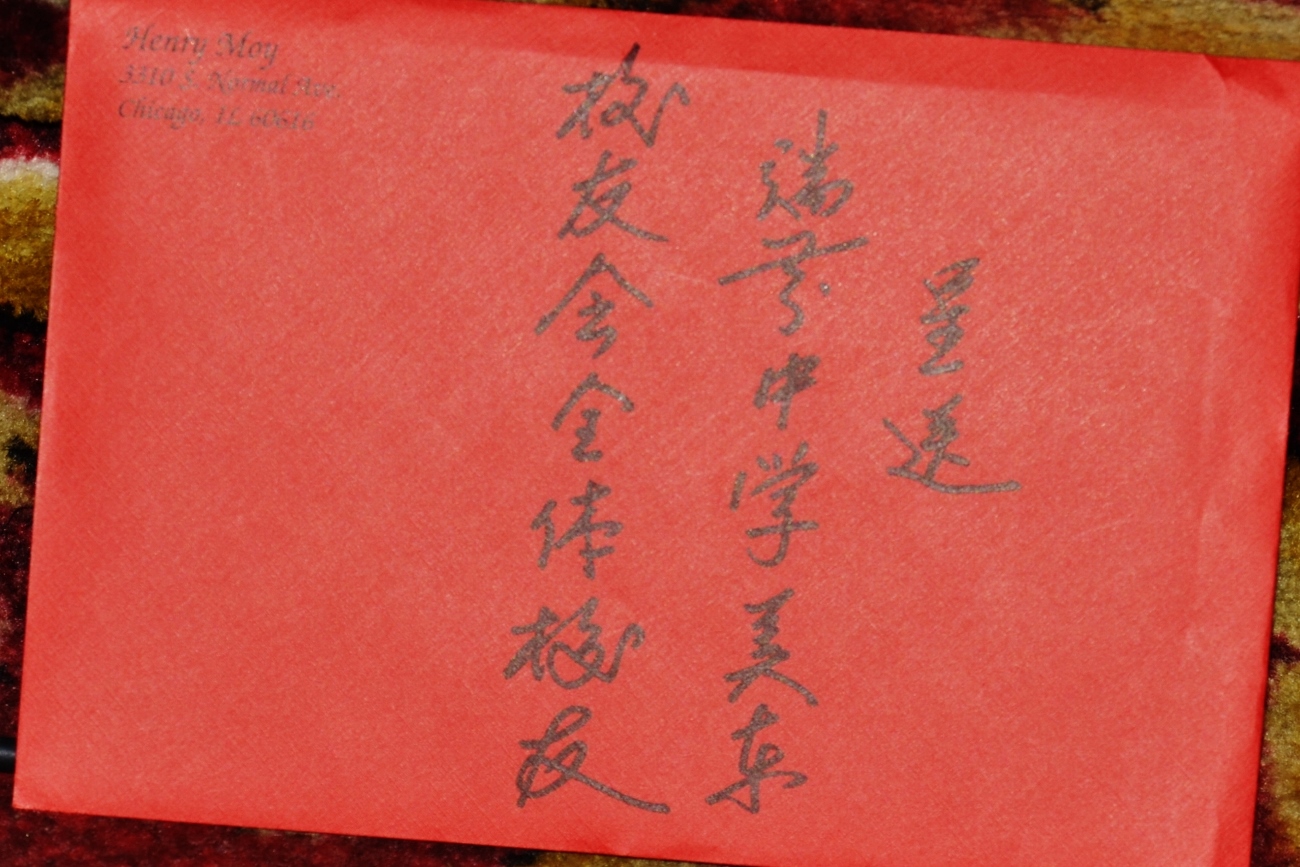 Henry Moy
3310 S. Normal Ave.
Chicago, IL 60616
呈送
瑞芬中学美东
校友会全体校友